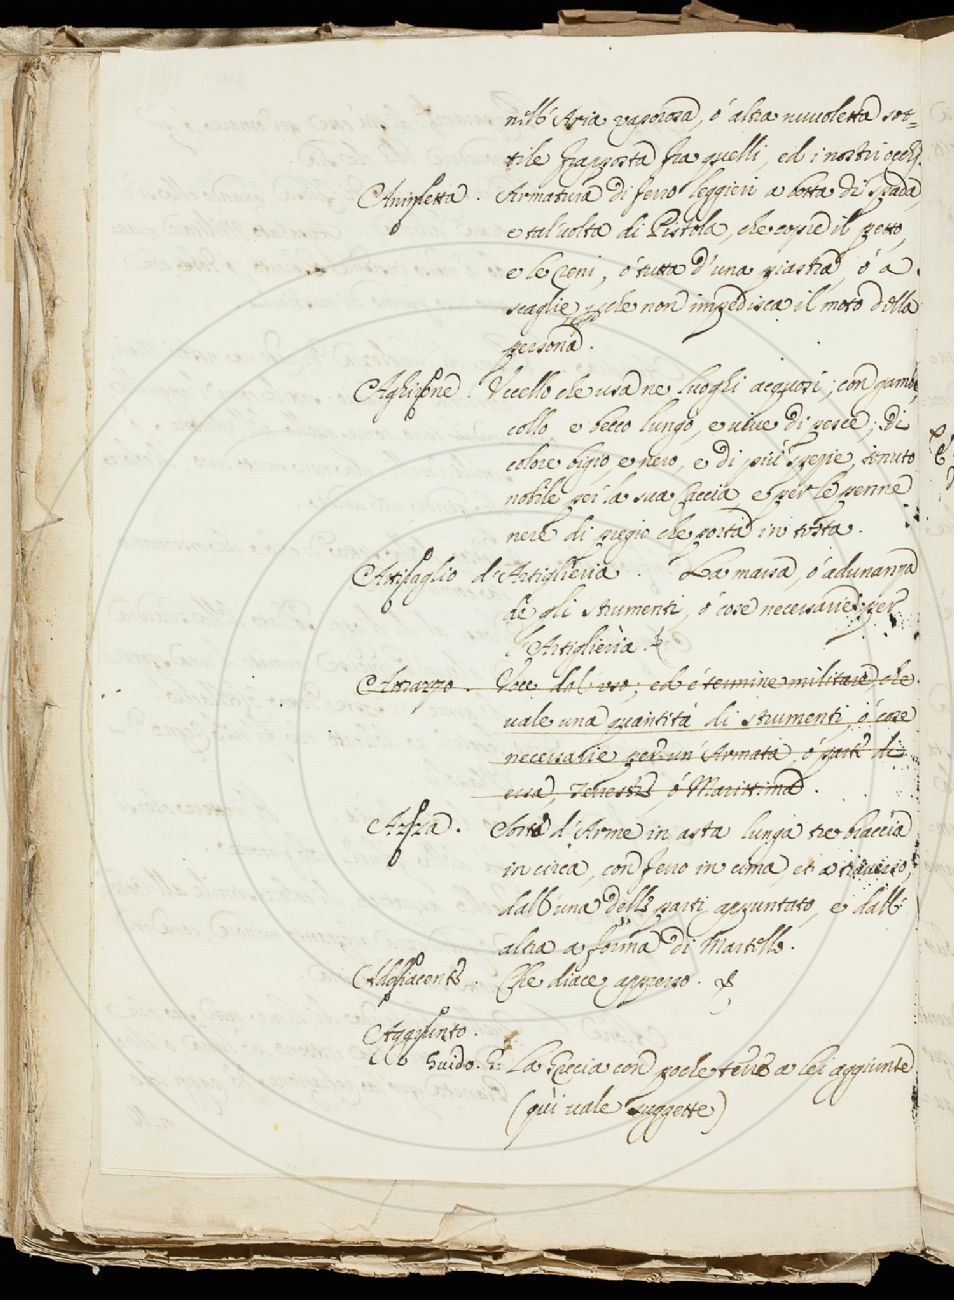 nell'Aria vaporosa, ó altra nuvoletta sot=
tile frapposta fra quelli, ed i nostri occhi
Animetta. Armatura di ferro leggieri a botta di spada
e tal'volta di Pistola, che copre il petto,
e le Reni, ó tutta d'una piastra, ó a
scaglie, che non impedisca il moto della
persona.
Aghirone. Uccello che usa ne luoghi acquosi; con gambe,
collo e becco lungo, e vive di pesce; Di
colore bigio, e nero, e di piú spezie, tenuto
nobile per la sua caccia e per le penne
nere di pregio che porta in testa.
d'Artiglieria. La massa, ó adunanza
de gli strumenti, ó cose necessarie per
l'Artiglieria.
Attrazzo. Voce dal uso; ed é termine militare, che
vale una quantitá di strumenti, ó cose
necessarie per un'Armata, ó parte di
essa, Terrestre, ó Marittima.
Azza. Sorte d'Arme in asta lunga tre braccia
in circa, con ferro in cima, et a traverso,
dall'una delle parti appuntato, e dall'
altra a forma di Martello.
Adgiacente. Che diace appresso.
Aggiunto.
Guido. La Grecia con poche terre a lei aggiunte
(qui vale suggette)